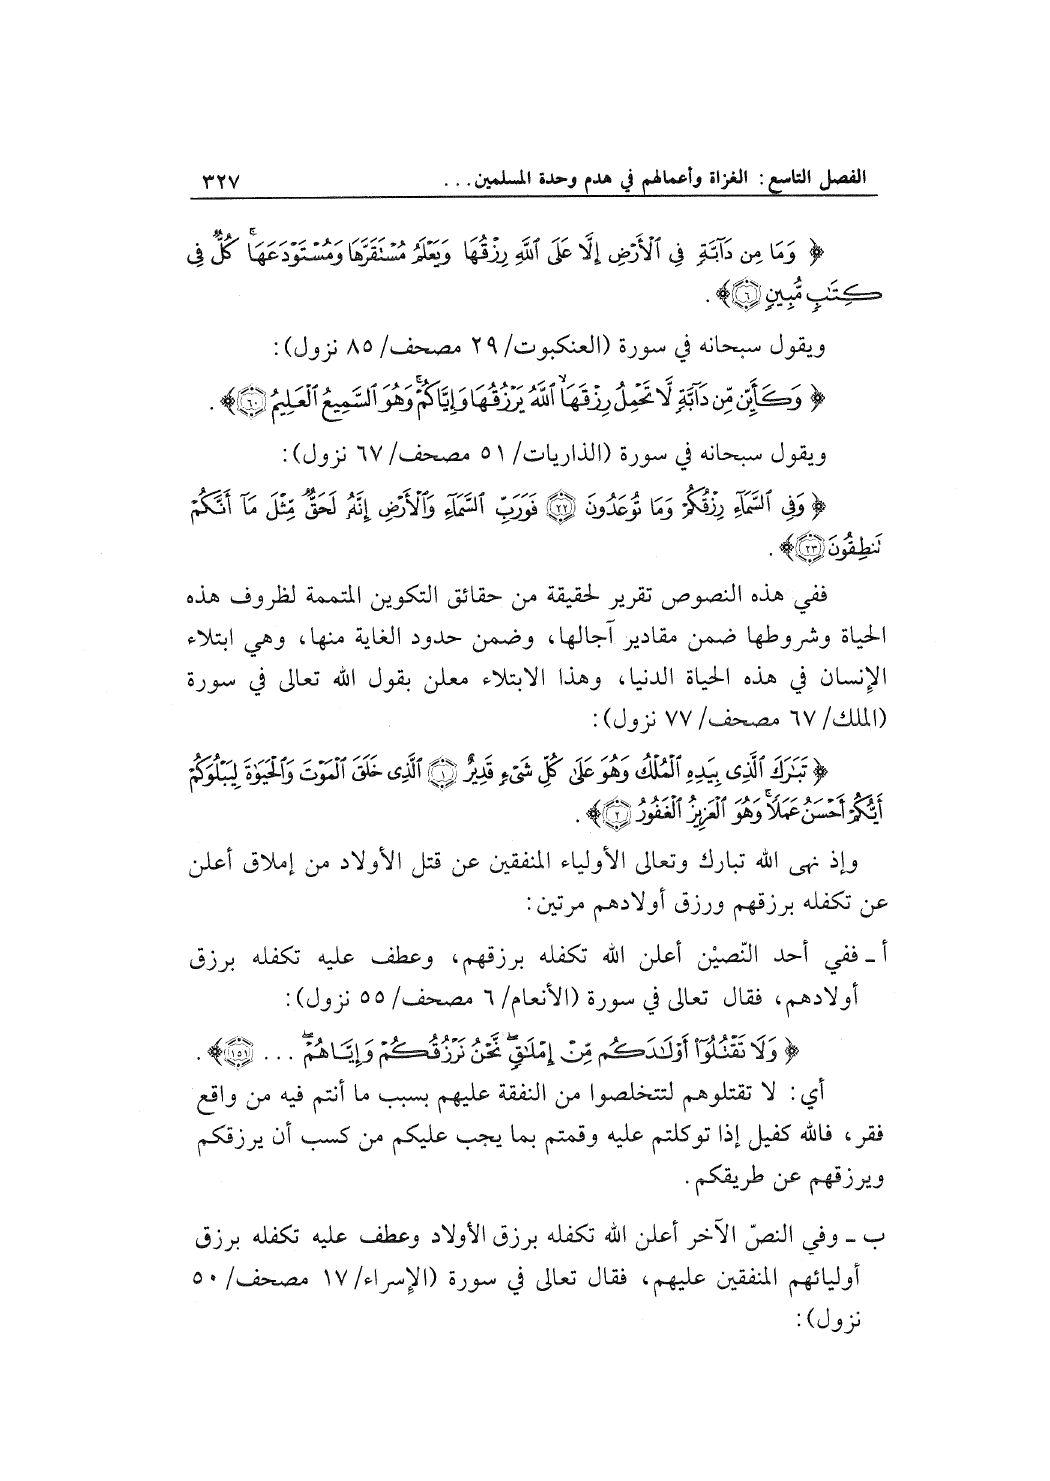 الفصل التاسع: الغزاة وأعمالهم في هدم وحدة المسلمين... ٣٢٧
﴿ وَمَا مِن دَآبَّةٍ فِي ٱلْأَرْضِ إِلَّا عَلَى ٱللَّهِ رِزْقُهَا وَيَعْلَمُ مُسْتَقَرَّهَا وَمُسْتَوْدَعَهَا ۚ كُلٌّ فِي
كِتَٰبٍ مُّبِينٍ ٦﴾.
ويقول سبحانه في سورة (العنكبوت/ ٢٩ مصحف/ ٨٥ نزول):
﴿ وَكَأَيِّن مِّن دَآبَّةٍ لَّا تَحْمِلُ رِزْقَهَا ٱللَّهُ يَرْزُقُهَا وَإِيَّاكُمْ ۚ وَهُوَ ٱلسَّمِيعُ ٱلْعَلِيمُ ٦٠﴾.
ويقول سبحانه في سورة (الذاريات/ ٥١ مصحف/ ٦٧ نزول):
﴿ وَفِي ٱلسَّمَآءِ رِزْقُكُمْ وَمَا تُوعَدُونَ ٢٢ فَوَرَبِّ ٱلسَّمَآءِ وَٱلْأَرْضِ إِنَّهُۥ لَحَقٌّ مِّثْلَ مَآ أَنَّكُمْ
تَنطِقُونَ ٢٣﴾.
ففي هذه النصوص تقرير لحقيقة من حقائق التكوين المتممة لظروف هذه
الحياة وشروطها ضمن مقادير آجالها، وضمن حدود الغاية منها، وهي ابتلاء
الإنسان في هذه الحياة الدنيا، وهذا الابتلاء معلن بقول الله تعالى في سورة
(الملك/ ٦٧ مصحف/ ٧٧ نزول):
﴿ تَبَٰرَكَ ٱلَّذِي بِيَدِهِ ٱلْمُلْكُ وَهُوَ عَلَىٰ كُلِّ شَيْءٍ قَدِيرٌ ١ ٱلَّذِي خَلَقَ ٱلْمَوْتَ وَٱلْحَيَوٰةَ لِيَبْلُوَكُمْ
أَيُّكُمْ أَحْسَنُ عَمَلًا ۚ وَهُوَ ٱلْعَزِيزُ ٱلْغَفُورُ ٢﴾.
وإذ نهى الله تبارك وتعالى الأولياء المنفقين عن قتل الأولاد من إملاق أعلن
عن تكفله برزقهم ورزق أولادهم مرتين:
أ ـ ففي أحد النّصيْن أعلن الله تكفله برزقهم، وعطف عليه تكفله برزق
أولادهم، فقال تعالى في سورة (الأنعام/ ٦ مصحف/ ٥٥ نزول):
﴿ وَلَا تَقْتُلُوٓا۟ أَوْلَٰدَكُم مِّنْ إِمْلَٰقٍ ۖ نَّحْنُ نَرْزُقُكُمْ وَإِيَّاهُمْ ۖ ... ١٥١﴾.
أي: لا تقتلوهم لتتخلصوا من النفقة عليهم بسبب ما أنتم فيه من واقع
فقر، فالله كفيل إذا توكلتم عليه وقمتم بما يجب عليكم من كسب أن يرزقكم
ويرزقهم عن طريقكم.
ب ـ وفي النصّ الآخر أعلن الله تكفله برزق الأولاد وعطف عليه تكفله برزق
أوليائهم المنفقين عليهم، فقال تعالى في سورة (الإسراء/ ١٧ مصحف/ ٥٠
نزول):